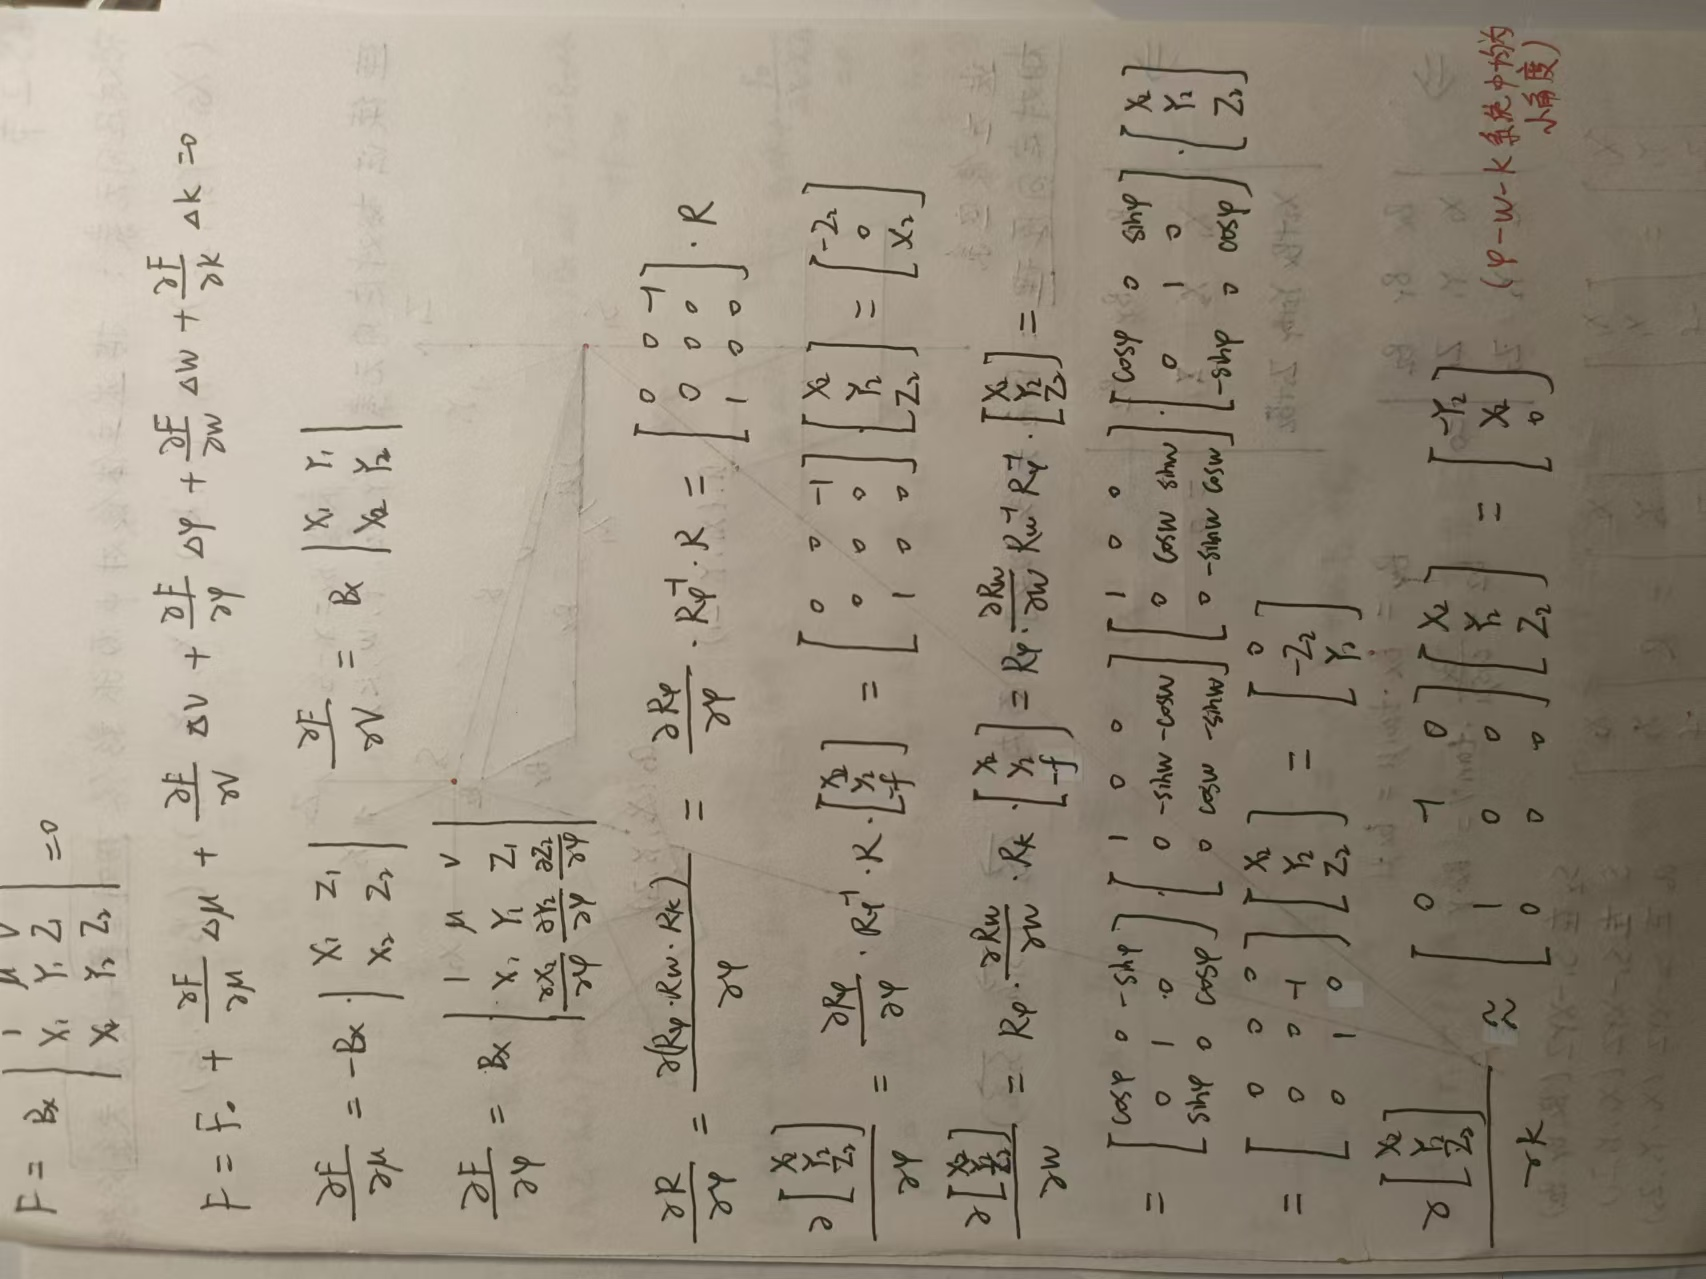 F = Bx | 1 μ ν ; X₁ Y₁ Z₁ ; X₂ Y₂ Z₂ | = 0
F = F₀ + ∂F/∂μ Δμ + ∂F/∂ν Δν + ∂F/∂φ Δφ + ∂F/∂w Δw + ∂F/∂k Δk = 0
∂F/∂μ = -Bx · | X₁ Z₁ ; X₂ Z₂ | ∂F/∂ν = Bx | X₁ Y₁ ; X₂ Y₂ |
∂F/∂φ = Bx | 1 μ ν ; X₁ Y₁ Z₁ ; ∂X₂/∂φ ∂Y₂/∂φ ∂Z₂/∂φ |
∂R/∂φ = ∂(Rφ·Rw·Rk)/∂φ = ∂Rφ/∂φ · Rφ⁻¹ · R = [ 0 0 -1 ; 0 0 0 ; 1 0 0 ] · R
∂[ X₂ ; Y₂ ; Z₂ ]/∂φ = ∂Rφ/∂φ · Rφ⁻¹ · R · [ X₂ ; Y₂ ; -f ] = [ 0 0 -1 ; 0 0 0 ; 1 0 0 ] [ X₂ ; Y₂ ; Z₂ ] = [ -Z₂ ; 0 ; X₂ ]
∂[ X₂ ; Y₂ ; Z₂ ]/∂w = Rφ · ∂Rw/∂w · Rk · [ X₂ ; Y₂ ; -f ] = Rφ · ∂Rw/∂w Rw⁻¹ Rφ⁻¹ · [ X₂ ; Y₂ ; Z₂ ] =
= [ cosφ 0 -sinφ ; 0 1 0 ; sinφ 0 cosφ ] · [ 1 0 0 ; 0 -sinw -cosw ; 0 cosw -sinw ] [ 1 0 0 ; 0 cosw sinw ; 0 -sinw cosw ] · [ cosφ 0 sinφ ; 0 1 0 ; -sinφ 0 cosφ ] · [ X₂ ; Y₂ ; Z₂ ]
= [ 0 0 0 ; 0 0 -1 ; 0 1 0 ] [ X₂ ; Y₂ ; Z₂ ] = [ 0 ; -Z₂ ; Y₂ ]
∂[ X₂ ; Y₂ ; Z₂ ]/∂k ≈ [ 0 -1 0 ; 1 0 0 ; 0 0 0 ] [ X₂ ; Y₂ ; Z₂ ] = [ -Y₂ ; X₂ ; 0 ] (φ-w-k系统中均为
小角度)